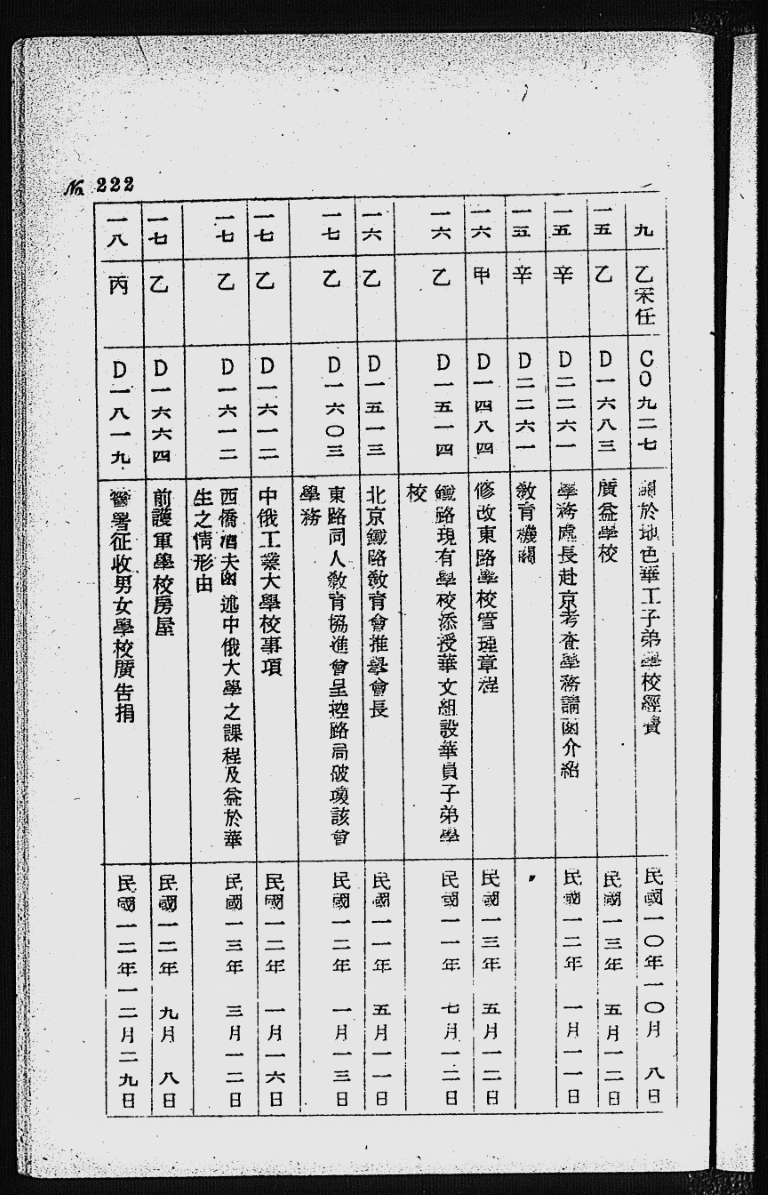 No. 222
九 乙宋任 CO九二七 關於地色華工子弟學校經費 民國一〇年一〇月 八日
一五 乙 D一六八三 廣益學校 民國一三年 五月一二日
一五 辛 D二二六一 學務處長赴京考查學務請函介紹 民國一二年 一月一一日
一五 辛 D二二六一 敎育機關 〃
一六 甲 D一四八四 修改東路學校管理章程 民國一三年 五月一二日
一六 乙 D一五一四 鐵路現有學校添授華文組設華員子弟學
校 民國一一年 七月一二日
一六 乙 D一五一三 北京鐵路敎育會推擧會長 民國一一年 五月一一日
一七 乙 D一六〇三 東路同人敎育協進會呈控路局破壞該會
學務 民國一二年 一月一三日
一七 乙 D一六一二 中俄工業大學校事項 民國一二年 一月一六日
一七 乙 D一六一二 西僑 夫函述中俄大學之課程及益於華
生之情形由 民國一三年 三月一二日
一七 乙 D一六六四 前護軍學校房屋 民國一二年 九月 八日
一八 丙 D一八一九 警署征收男女學校廣告捐 民國一二年一二月二九日